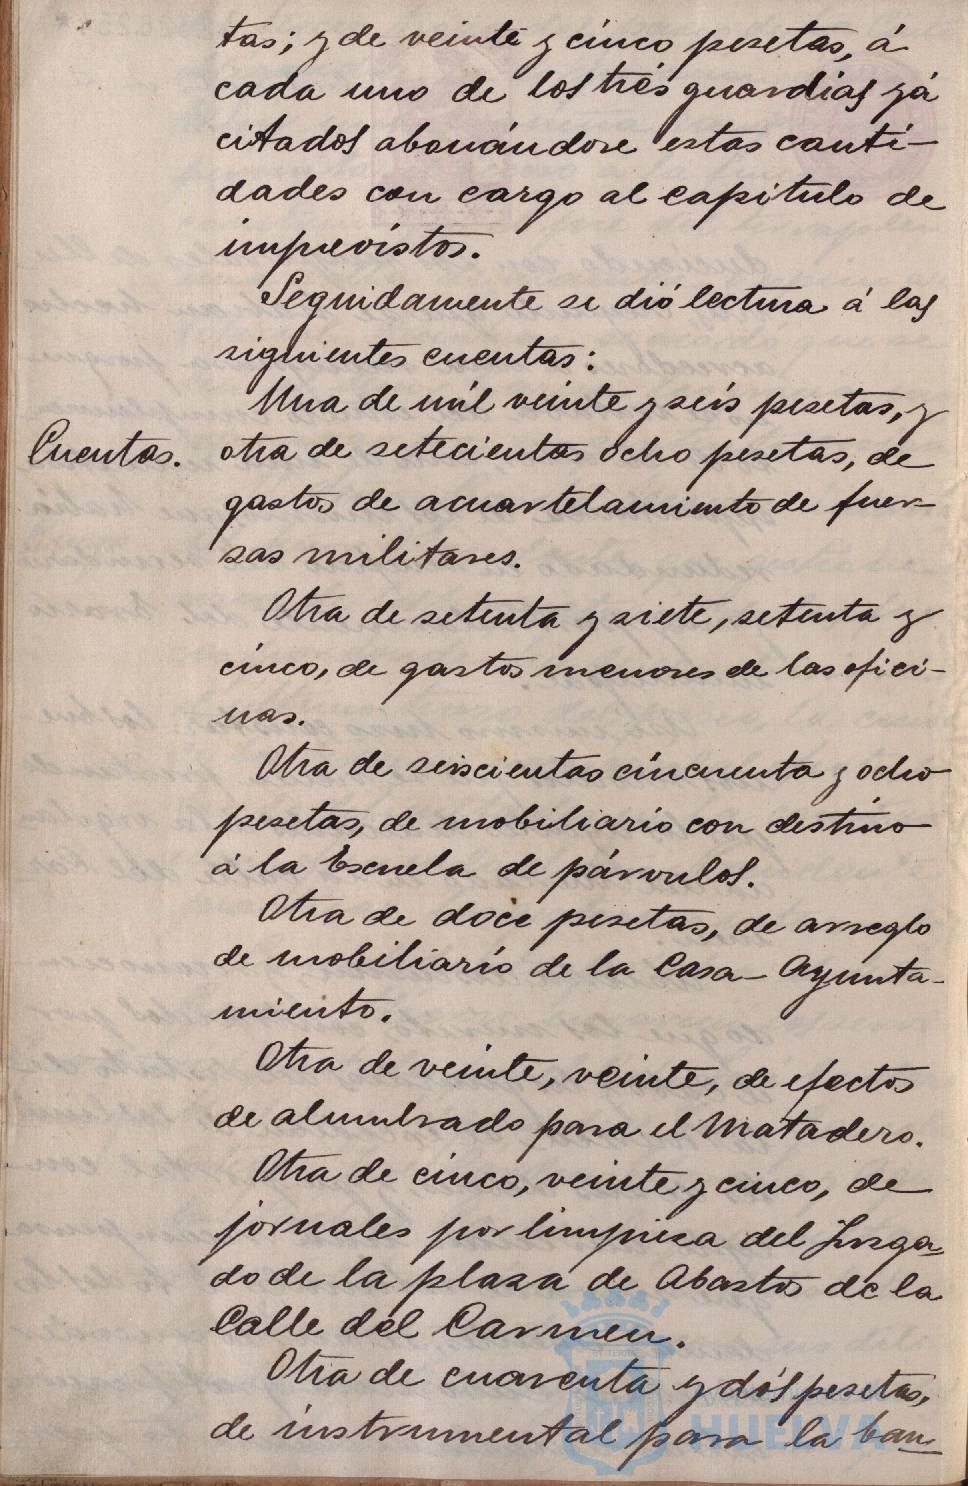 tas; y de veinte y cinco pesetas, á
cada uno de los trés guardias yá
citados abonándose estas canti-
dades con cargo al capitulo de
imprevistos.
Seguidamente se dió lectura á las
siguientes cuentas:
Una de mil veinte y seis pesetas, y
Cuentas.
otra de setecientas ocho pesetas, de
gastos de acuartelamiento de fuer-
zas militares.
Otra de setenta y siete, setenta y
cinco, de gastos menores de las ofici-
nas.
Otra de seiscientas cincuenta y ocho
pesetas, de mobiliario con destino
á la Escuela de párvulos.
Otra de doce pesetas, de arreglo
de mobiliario de la Casa-Ayunta-
miento.
Otra de veinte, veinte, de efectos
de alumbrado para el Matadero.
Otra de cinco, veinte y cinco, de
jornales por limpieza del Juzga-
do de la plaza de Abastos de la
Calle del Carmen.
Otra de cuarenta y dós pesetas,
de instrumental para la ban-
HUELVA